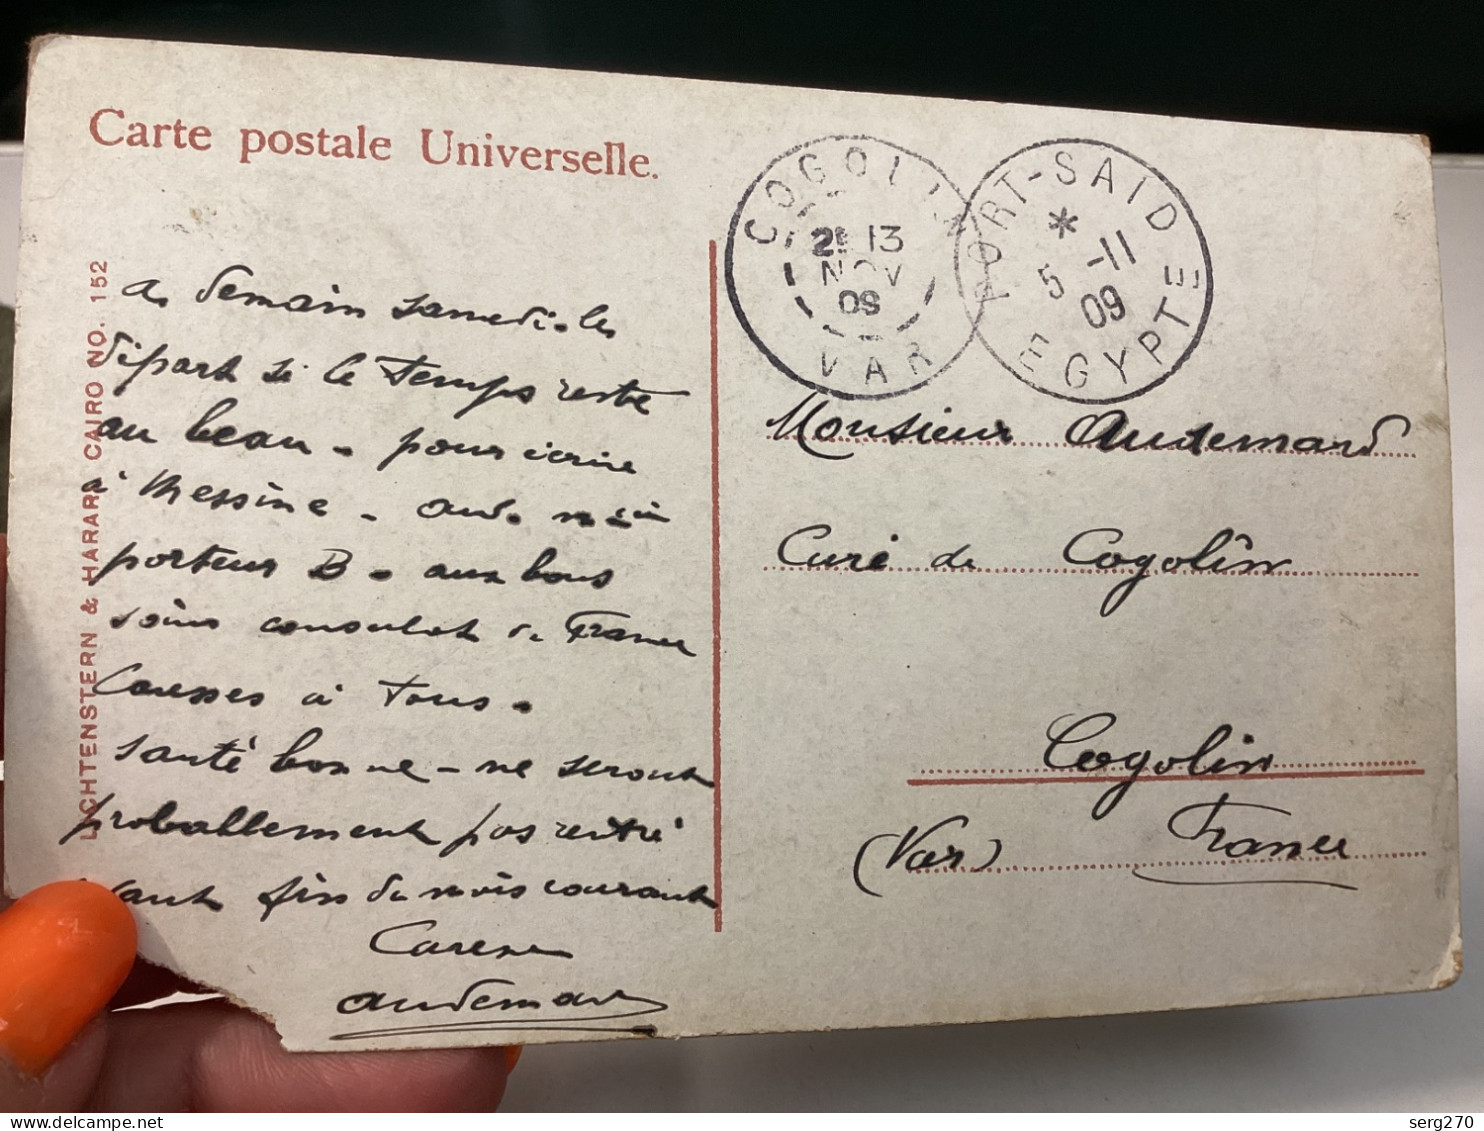 Carte postale Universelle.
LICHTENSTERN & HARARI CAIRO NO. 152
a demain samedi. le
départ si le temps reste
au beau. pour écrire
à Messine. Aud.
porteur B. aux bons
soins consulat de France
Caresses à tous.
santé bonne - ne seront
proballement pas rentré
avant fin du mois courant
Audemard
COGOLIN
2E 13
NOV
09
VAR
PORT-SAID
*
5 -11
09
EGYPTE
Monsieur Audemard
Curé de Cogolîn
Cogolin
(Var) France
serg270